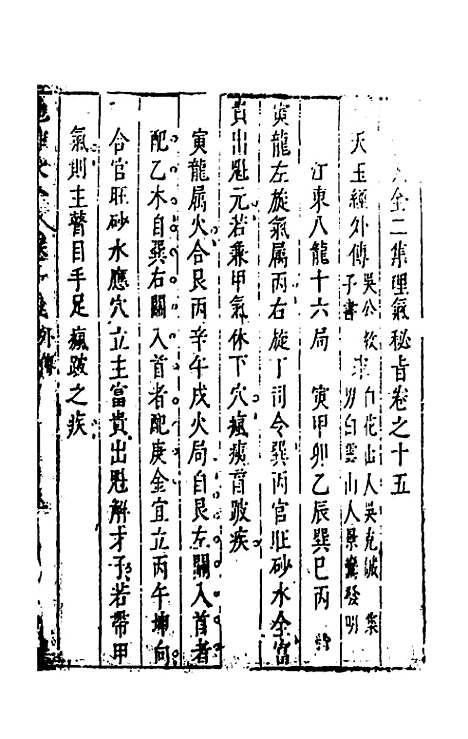 全二集理氣秘旨卷之十五
天玉經外傳 吳公 子書 白花山人吳克誠 集
男白雲山人景鸞發明
江東八龍十六局 寅甲卯乙辰巽巳丙
寅龍左旋氣屬丙右旋丁司令巽丙官旺砂水全富
貴出魁元若乘甲氣休下穴瘋瘓盲跛疾
寅龍屬火合艮丙辛午戌火局自艮左關入首者
配乙木自巽右關入首者配庚金宜立丙午坤向
合官旺砂水應穴立主富貴出魁解才子若帶甲
氣則主瞽目手足瘋跛之疾
外傳